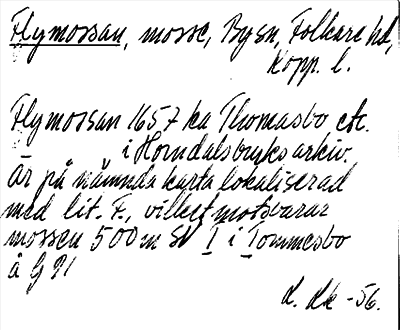 Flymossan, mosse, Bysn, Folkare hd,
Kopp. l.
Flymossan 1657 ka Thomasbo etc.
i Horndalsbruks arkiv.
Är på nämnda karta lokaliserad
med lit. F., vilket motsvarar
mossen 500 m SV I i Tommesbo
å G Bl